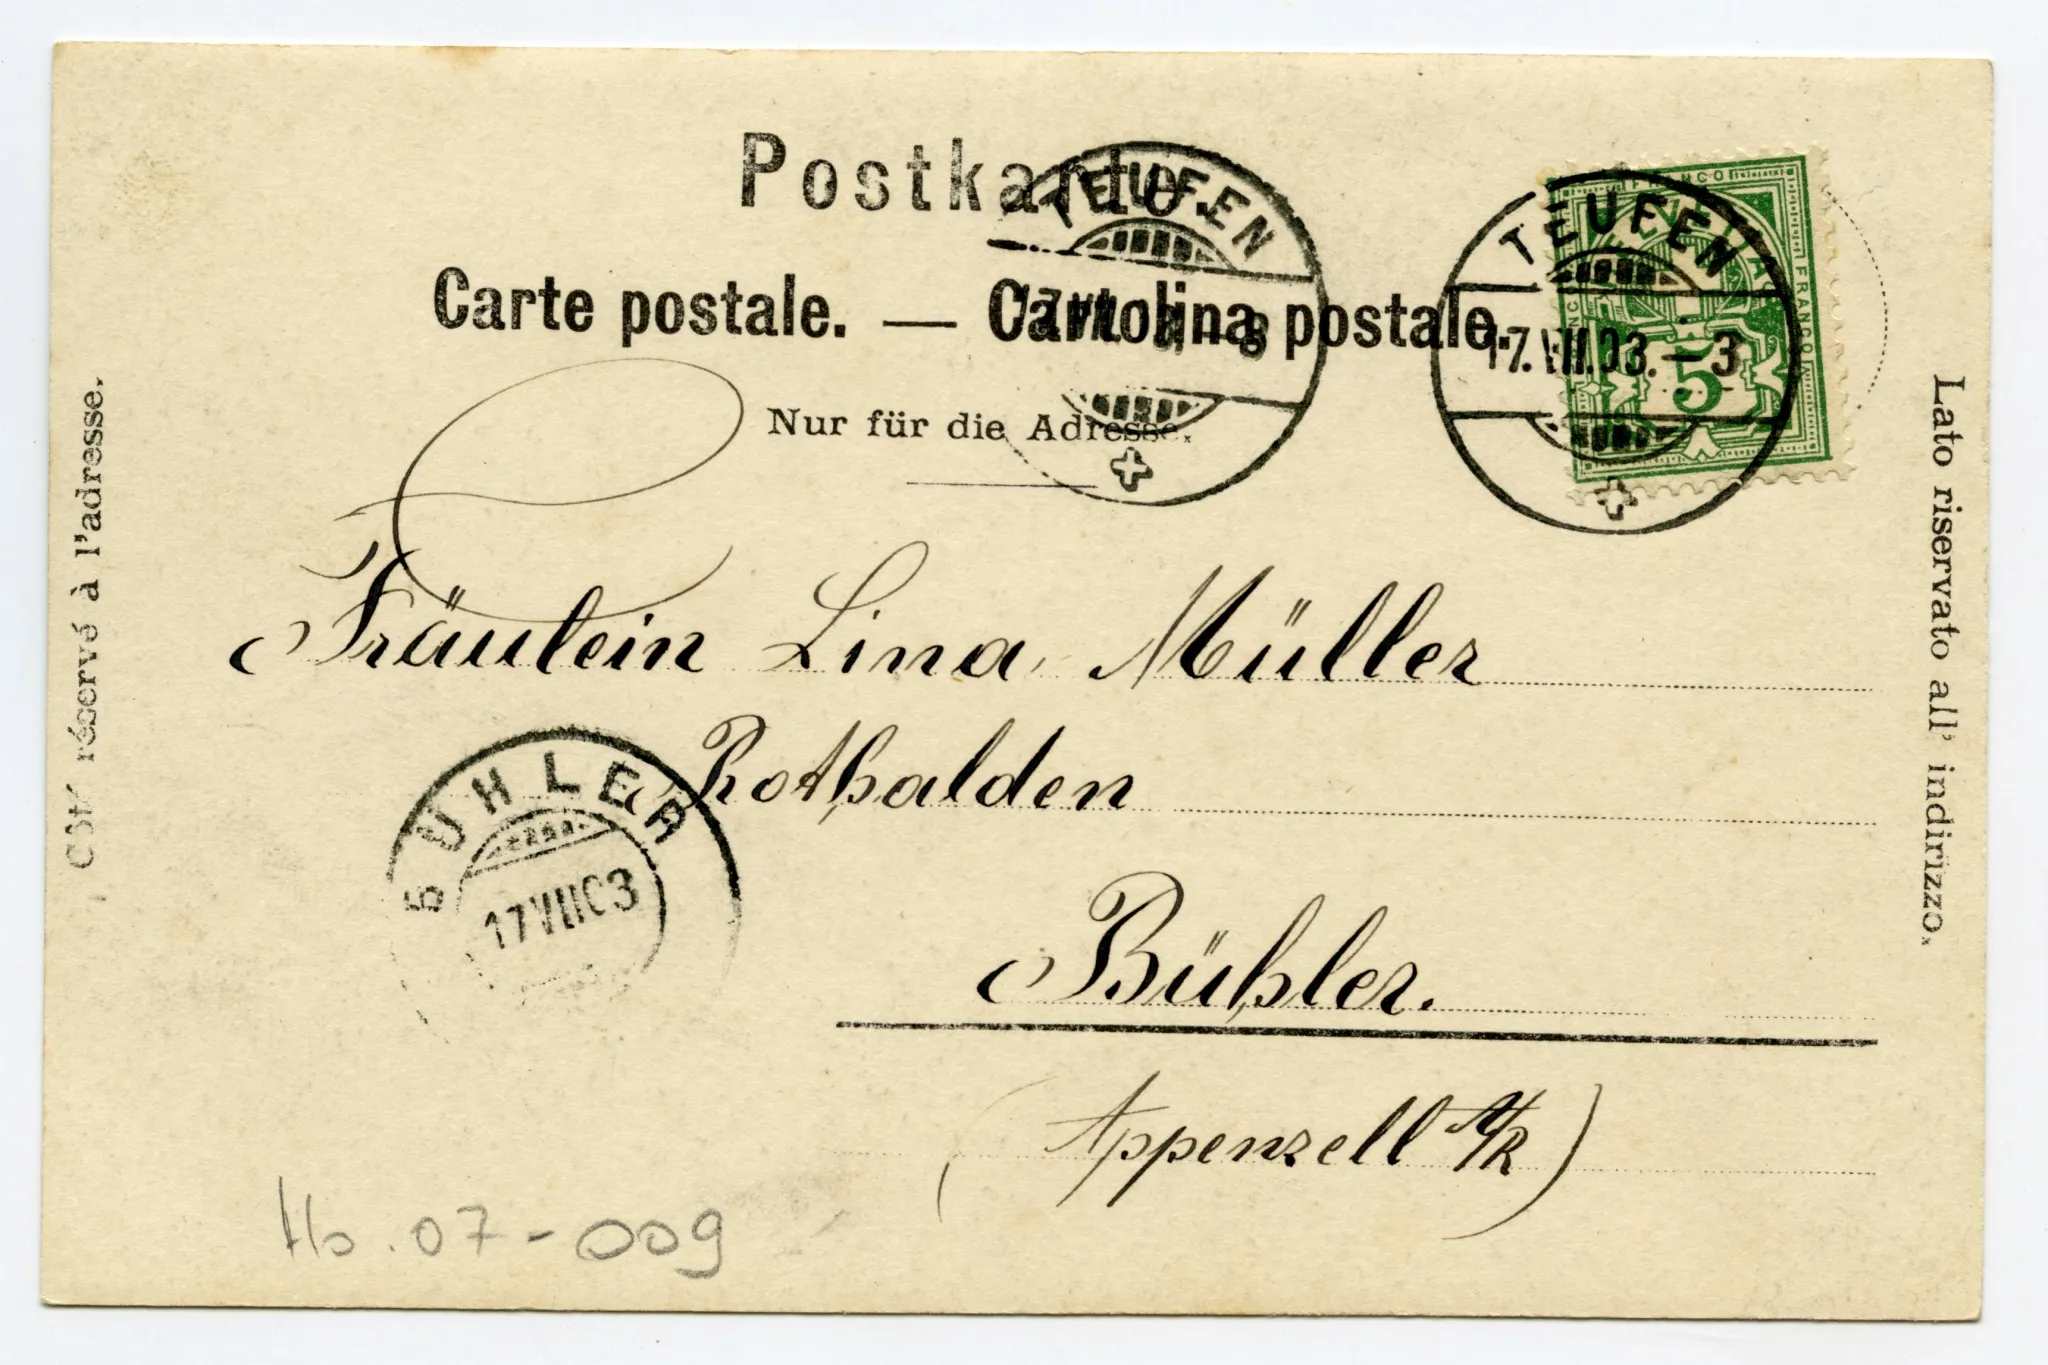 Postkarte.
Carte postale. — Cartolina postale.
Nur für die Adresse.
TEUFEN
TEUFEN
17.VII.03.–3
FRANCO
FRANCO
HELVETIA
5
Côté réservé à l'adresse.
Lato riservato all' indirizzo.
Fräulein Lina Müller
Rothalden
Bühler.
(Appenzell A/R)
BÜHLER
17 VII 03
Ho.07-009